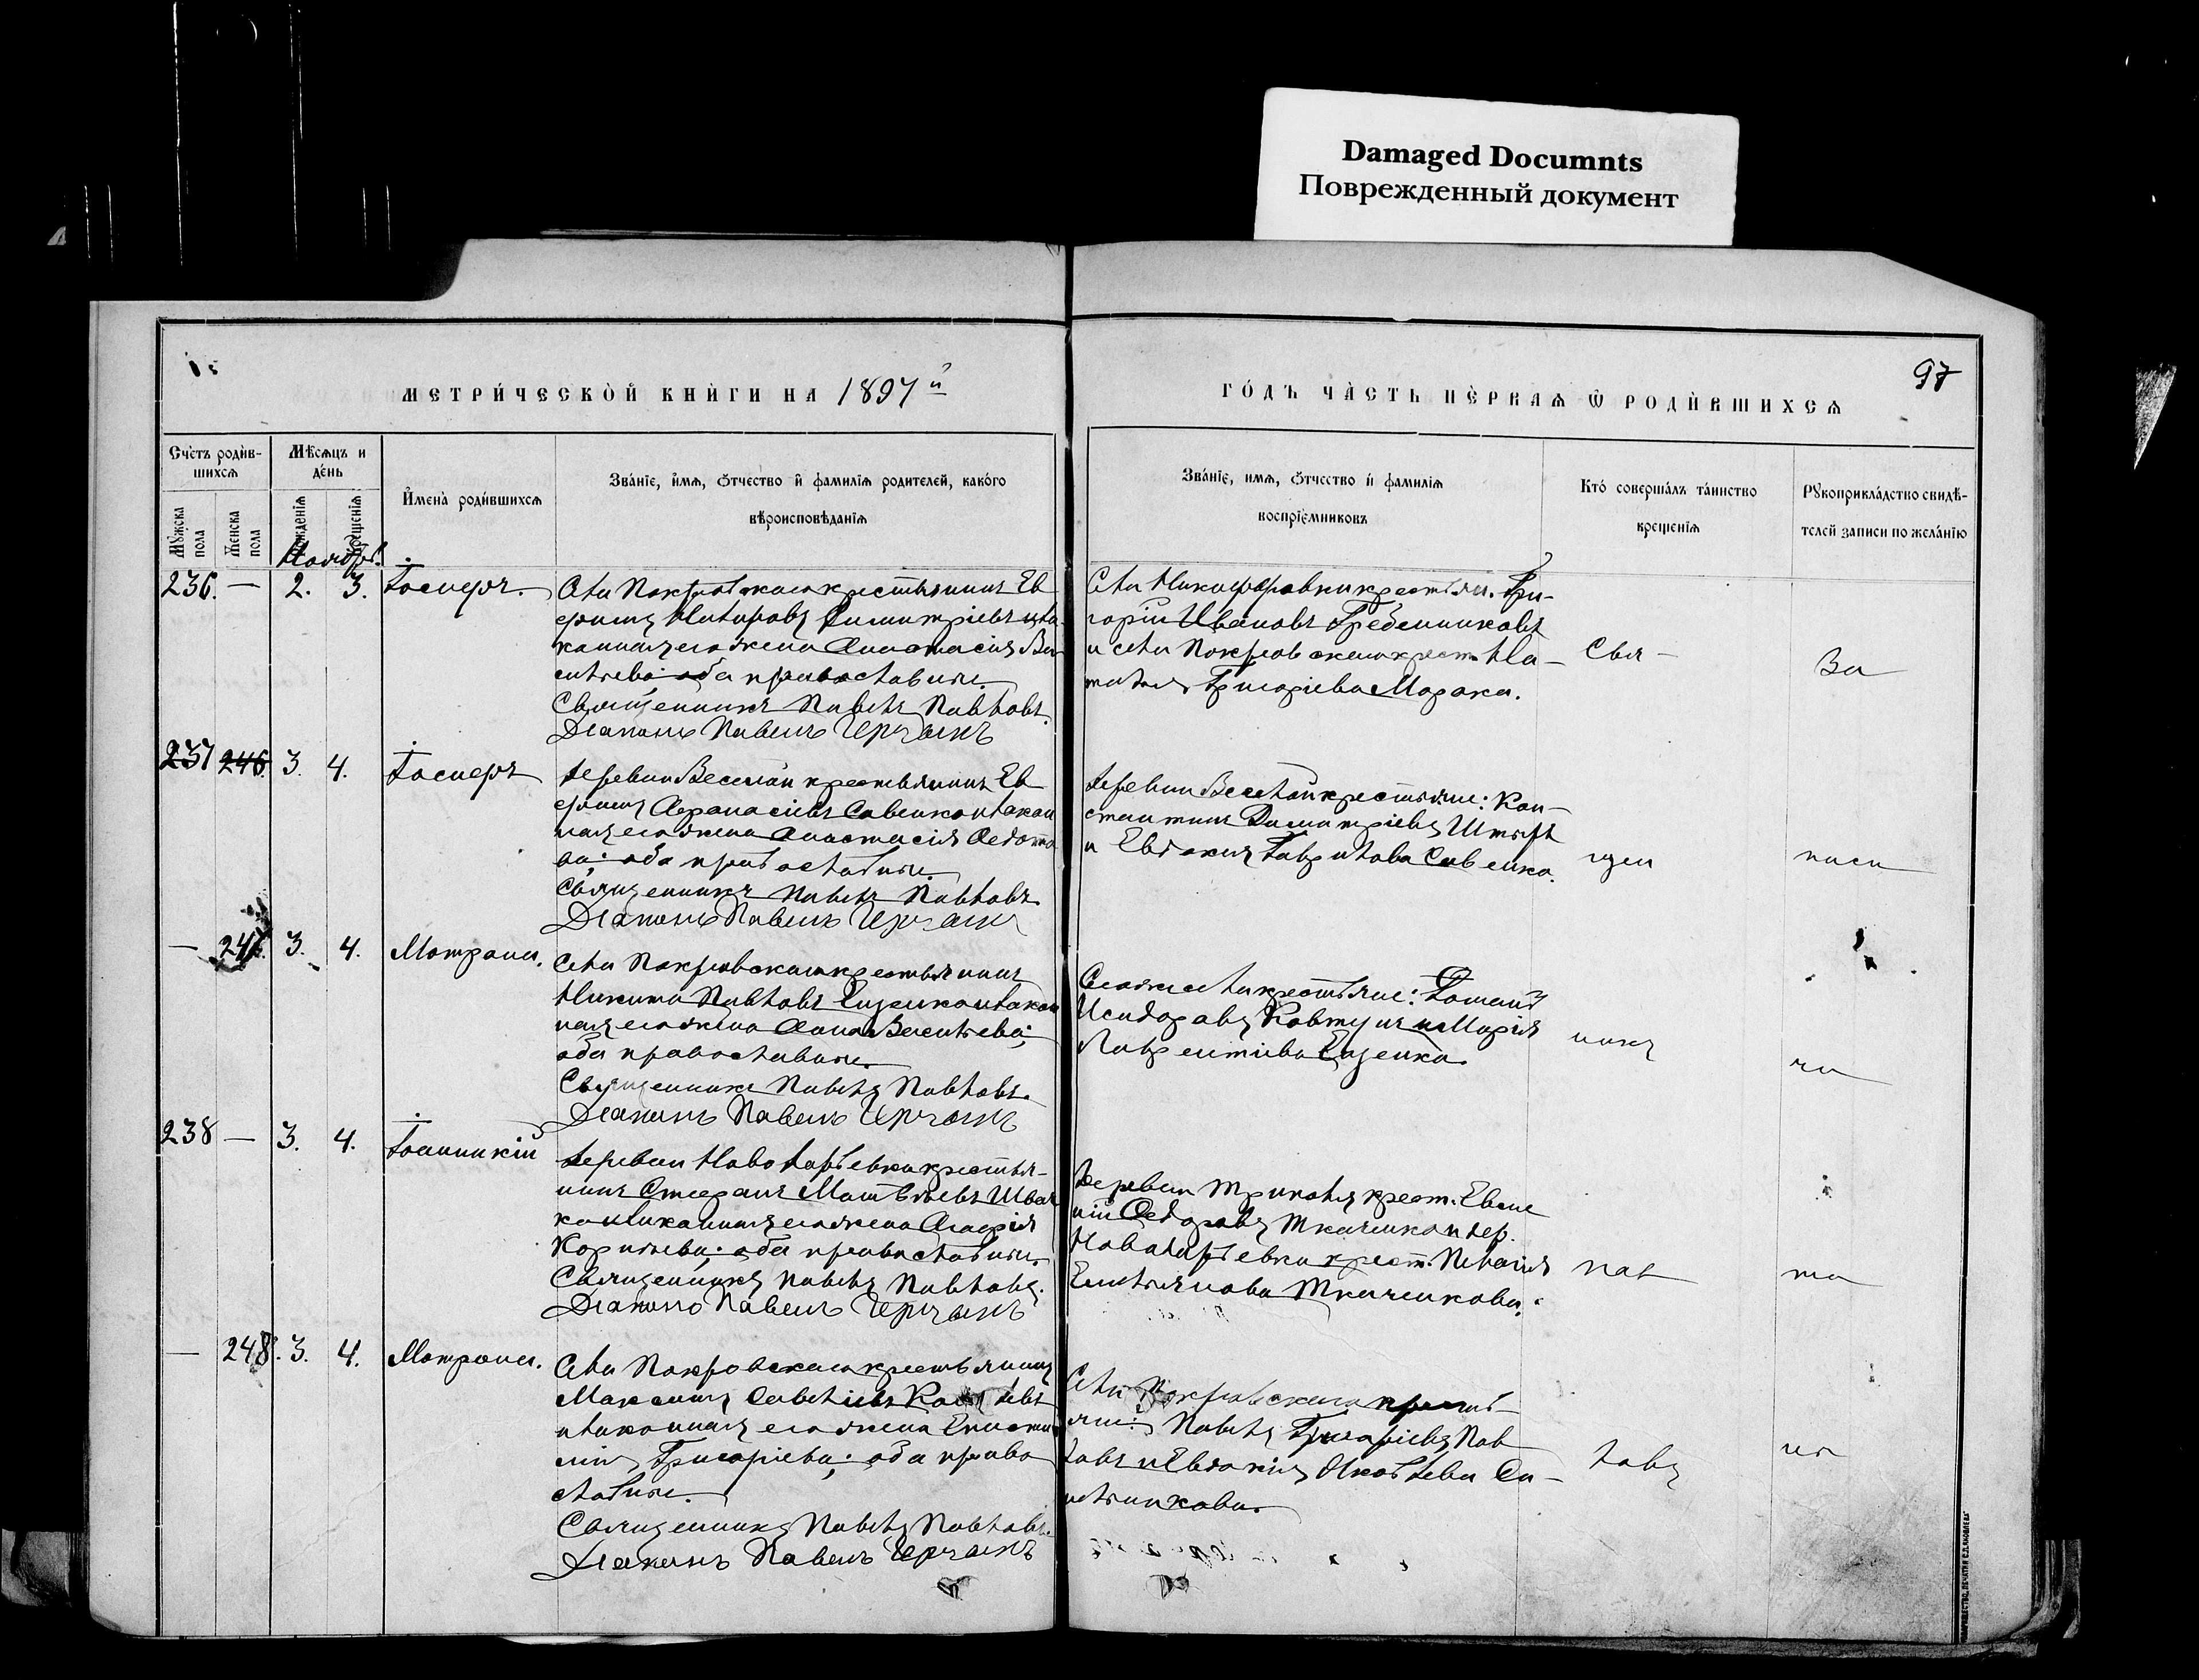 Damaged Documnts
Поврежденный документ
97
МЕТРИ́ЧЕСКОЙ КНИ́ГИ НА 1897 й
ГО́ДЪ ЧА́СТЬ ПЕ́РВАѦ Ѽ РОДИ́ВШИХСѦ
Сче́тъ роди́в-
шихсѧ
Мꙋжска пола
Женска пола
Мѣ́сѧцъ и
де́нь
рожденїѧ
крещенїѧ
И҆мена̀ роди́вшихсѧ
Зва́нїе, и҆́мѧ, ѻ҆́тчество и҆ фами́лїѧ роди́телей, како́го
вѣроисповѣ́данїѧ
Зва́нїе, имѧ, ѻ҆́тчество и҆ фами́лїѧ
воспрїе́мниковъ
Кто́ соверша́лъ та́инство
креще́нїѧ
Рꙋкоприкла́дство свидѣ́-
телей записи по жела́нїю
Ноябрь
236. — 2. 3. Іосифъ.
Села Покровскаго крестьянинъ Ев
фимъ Никифоровъ Димитріевъ и за
конная его жена Анастасія Ва
сильева оба православные.
Священникъ Павелъ Павловъ.
Діаконъ Павелъ
Села Никифоровки крестьян. Гри-
горій Ивановъ Гребенниковъ
и села Покровскаго крест. На-
талія Григоріева Морока.
Свя-
За
237 246. 3. 4. Іосифъ
Деревни Веселой крестьянинъ Ев
фимъ Афанасіевъ Савенко и закон
ная его жена Анастасія Федото
ва; оба православные.
Священникъ Павелъ Павловъ.
Діаконъ Павелъ
Деревни Веселой крестьяне: Кон-
стантинъ Димитріевъ Штырь
и Евдокія Гаврилова Савенко.
щен
писи
— 247. 3. 4. Матрона.
Села Покровскаго крестьянинъ
Никита Павловъ Ещенко и закон
ная его жена Анна Васильева;
оба православные.
Священникъ Павелъ Павловъ.
Діаконъ Павелъ
Сего же села крестьяне: Романъ
Исидоровъ Ковтунъ и Марія
Лаврентіева Ещенко.
никъ
238 — 3. 4. Іоанникій
Деревни Новодарьевки крестья-
нинъ Стефанъ Матвѣевъ Швач
ко и законная его жена Агафія
Корнѣева; оба православные.
Священникъ Павелъ Павловъ.
Діаконъ Павелъ
Деревни крест. Евге
ній Федоровъ Ткаченко и дер.
Новодарьевки крест. Пелагія
Емельянова Ткаченкова.
Пав
— 248. 3. 4. Матрона.
Села Покровскаго крестьянинъ
Максимъ Савельевъ
и законная его жена
Григоріева; оба право
славные.
Священникъ Павелъ Павловъ.
Діаконъ Павелъ
Села Покровскаго крестьь-
яне: Павелъ Григоріевъ Пав
ловъ и Евдокія Яковлева Си-
нельникова.
ловъ